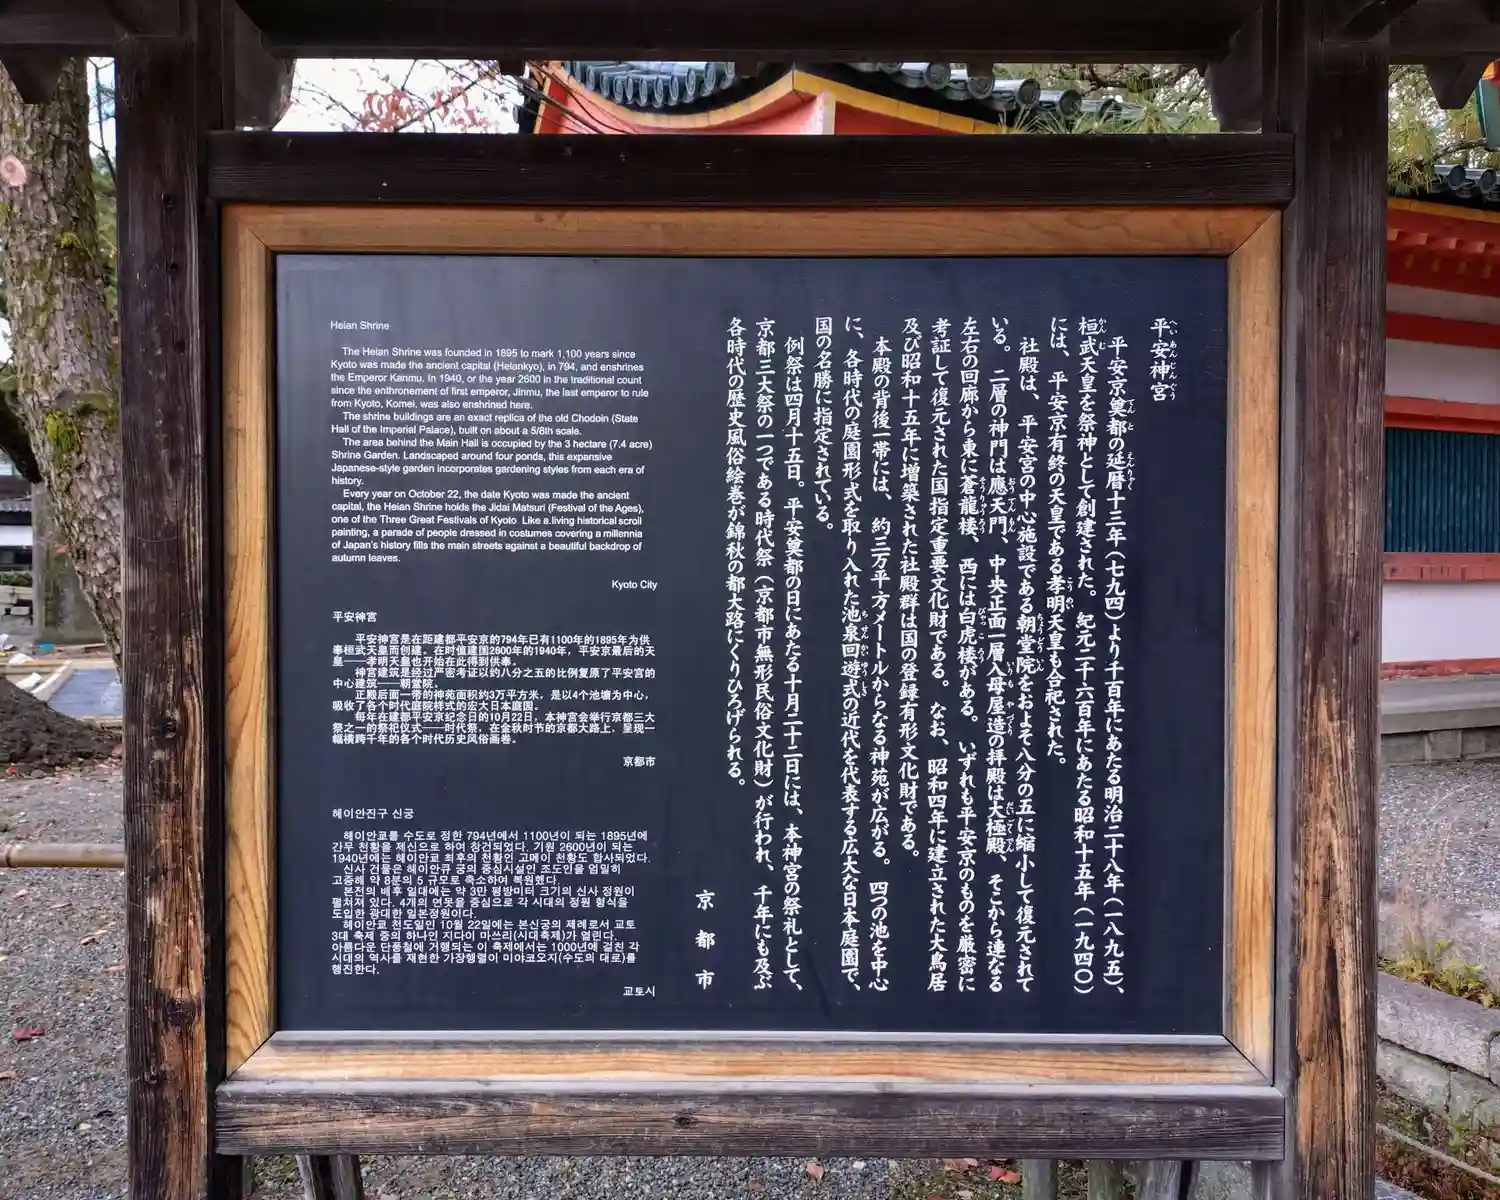 Heian Shrine
The Heian Shrine was founded in 1895 to mark 1,100 years since
Kyoto was made the ancient capital (Heiankyo), in 794, and enshrines
the Emperor Kanmu. In 1940, or the year 2600 in the traditional count
since the enthronement of first emperor, Jinmu, the last emperor to rule
from Kyoto, Komei, was also enshrined here.
The shrine buildings are an exact replica of the old Chodoin (State
Hall of the Imperial Palace), built on about a 5/8th scale.
The area behind the Main Hall is occupied by the 3 hectare (7.4 acre)
Shrine Garden. Landscaped around four ponds, this expansive
Japanese-style garden incorporates gardening styles from each era of
history.
Every year on October 22, the date Kyoto was made the ancient
capital, the Heian Shrine holds the Jidai Matsuri (Festival of the Ages),
one of the Three Great Festivals of Kyoto Like a living historical scroll
painting, a parade of people dressed in costumes covering a millennia
of Japan's history fills the main streets against a beautiful backdrop of
autumn leaves.
Kyoto City
平安神宫
平安神宫是在距建都平安京的794年已有1100年的1895年为供
奉桓武天皇而创建。在时值建国2600年的1940年，平安京最后的天
皇——孝明天皇也开始在此得到供奉。
神宫建筑是经过严密考证以约八分之五的比例复原了平安宫的
中心建筑——朝堂院。
正殿后面一带的神苑面积约3万平方米，是以4个池塘为中心，
吸收了各个时代庭院样式的宏大日本庭园。
每年在建都平安京纪念日的10月22日，本神宫会举行京都三大
祭之一的祭祀仪式——时代祭，在金秋时节的京都大路上，呈现一
幅横跨千年的各个时代历史风俗画卷。
京都市
헤이안진구 신궁
헤이안쿄를 수도로 정한 794년에서 1100년이 되는 1895년에
간무 천황을 제신으로 하여 창건되었다. 기원 2600년이 되는
1940년에는 헤이안쿄 최후의 천황인 고메이 천황도 합사되었다.
신사 건물은 헤이안큐 궁의 중심시설인 조도인을 엄밀히
고증해 약 8분의 5 규모로 축소하여 복원했다.
본전의 배후 일대에는 약 3만 평방미터 크기의 신사 정원이
펼쳐져 있다. 4개의 연못을 중심으로 각 시대의 정원 형식을
도입한 광대한 일본정원이다.
헤이안쿄 천도일인 10월 22일에는 본신궁의 제례로서 교토
3대 축제 중의 하나인 지다이 마쓰리(시대축제)가 열린다.
아름다운 단풍철에 거행되는 이 축제에서는 1000년에 걸친 각
시대의 역사를 재현한 가장행렬이 미야코오지(수도의 대로)를
행진한다.
교토시
平安神宮
平安京奠都の延暦十三年（七九四）より千百年にあたる明治二十八年（一八九五）、
桓武天皇を祭神として創建された。紀元二千六百年にあたる昭和十五年（一九四〇）
には、平安京有終の天皇である孝明天皇も合祀された。
社殿は、平安宮の中心施設である朝堂院をおよそ八分の五に縮小して復元されて
いる。二層の神門は應天門、中央正面一層入母屋造の拝殿は大極殿、そこから連なる
左右の回廊から東に蒼龍楼、西には白虎楼がある。いずれも平安京のものを厳密に
考証して復元された国指定重要文化財である。なお、昭和四年に建立された大鳥居
及び昭和十五年に増築された社殿群は国の登録有形文化財である。
本殿の背後一帯には、約三万平方メートルからなる神苑が広がる。四つの池を中心
に、各時代の庭園形式を取り入れた池泉回遊式の近代を代表する広大な日本庭園で、
国の名勝に指定されている。
例祭は四月十五日。平安奠都の日にあたる十月二十二日には、本神宮の祭礼として、
京都三大祭の一つである時代祭（京都市無形民俗文化財）が行われ、千年にも及ぶ
各時代の歴史風俗絵巻が錦秋の都大路にくりひろげられる。
京都市